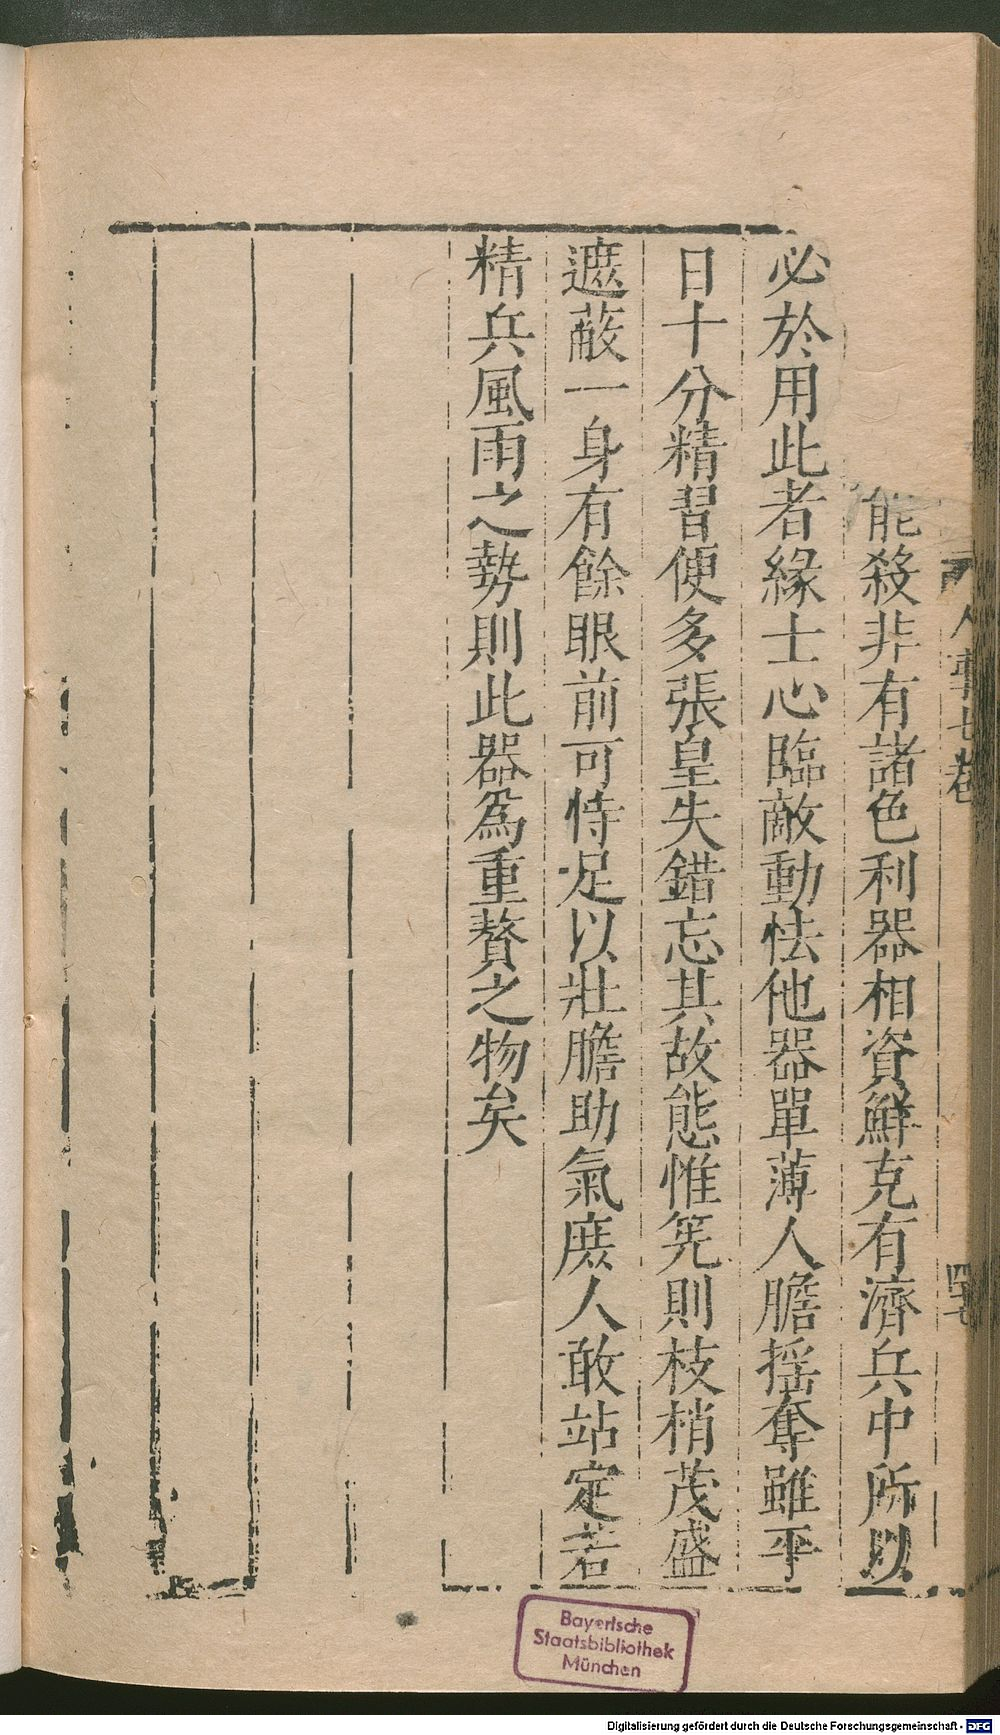 能殺非有諸色利器相資鮮克有濟兵中所以
必於用此者緣士心臨敵動怯他器單薄人膽揺奪雖平
日十分精習便多張皇失錯忘其故態惟筅則枝梢茂盛
遮蔽一身有餘眼前可恃足以壯膽助氣庻人敢站定若
精兵風雨之勢則此器爲重贅之物矣
Bayerische
Staatsbibliothek
München
Digitalisierung gefördert durch die Deutsche Forschungsgemeinschaft - DFG